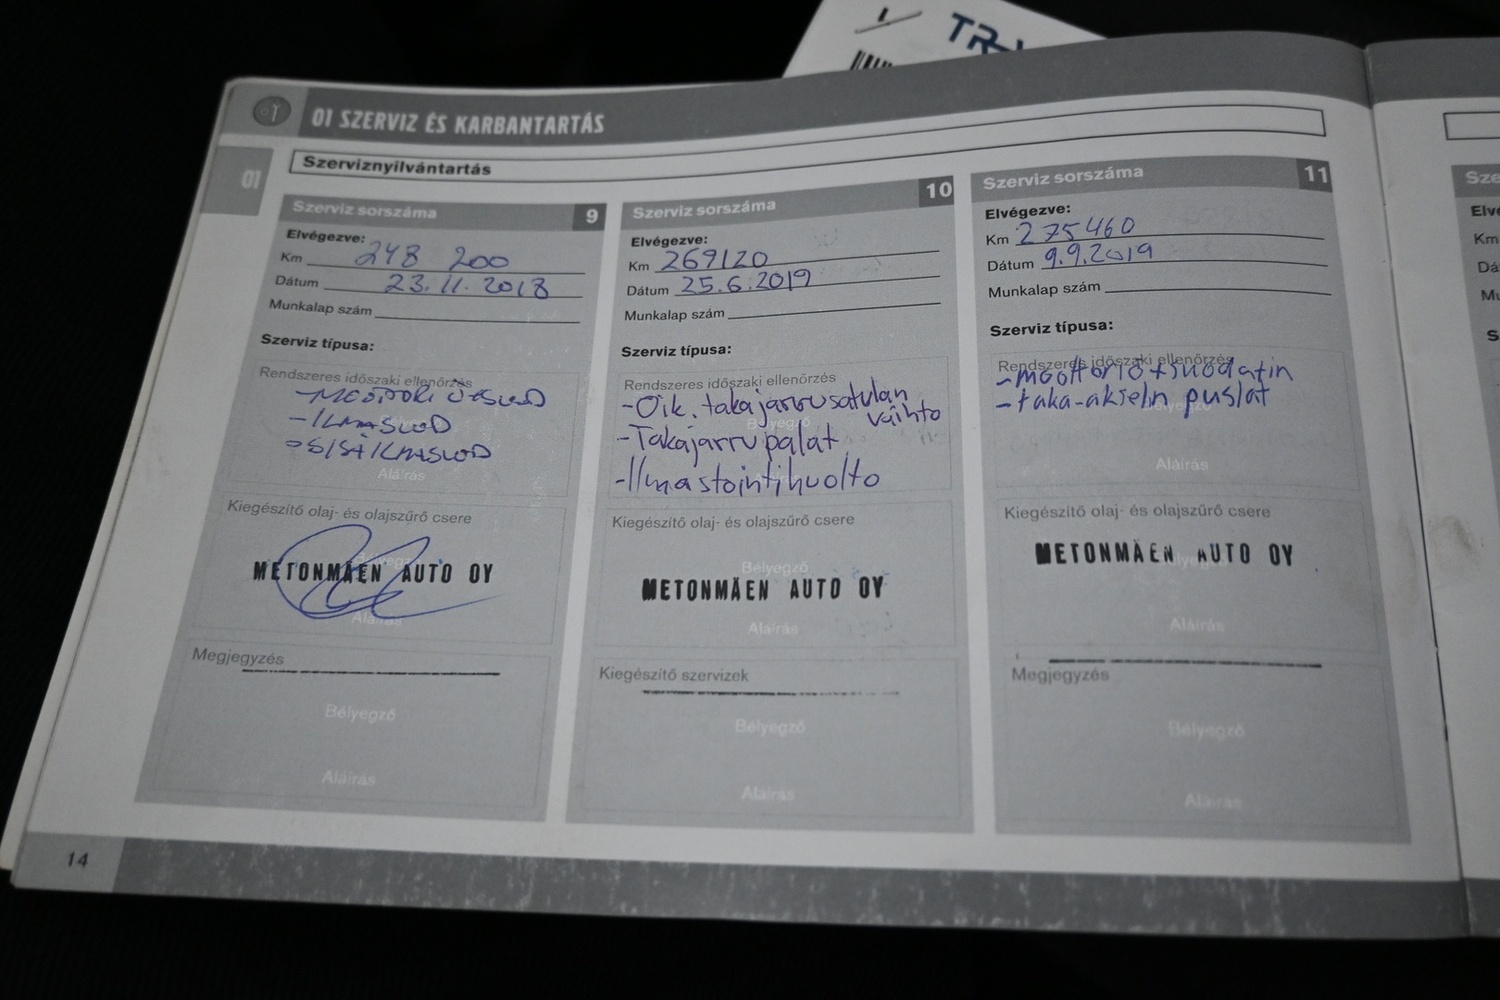 TR-
01 SZERVIZ ÉS KARBANTARTÁS
01
Szerviznyilvántartás
Szerviz sorszáma 9
Elvégezve:
Km 248 200
Dátum 23.11.2018
Munkalap szám
Szerviz típusa:
Rendszeres időszaki ellenőrzés
- ILMASUOD
SISÄILMASUOD
Aláírás
Kiegészítő olaj- és olajszűrő csere
Bélyegző
METONMÄEN AUTO OY
Aláírás
Megjegyzés
Bélyegző
Aláírás
14
Szerviz sorszáma 10
Elvégezve:
Km 269120
Dátum 25.6.2019
Munkalap szám
Szerviz típusa:
Rendszeres időszaki ellenőrzés
- Oik. takajarrusatulan
vaihto
Bélyegző
- Takajarrupalat
- Ilmastointihuolto
Kiegészítő olaj- és olajszűrő csere
Bélyegző
METONMÄEN AUTO OY
Aláírás
Kiegészítő szervizek
Bélyegző
Aláírás
Szerviz sorszáma 11
Elvégezve:
Km 275460
Dátum 9.9.2019
Munkalap szám
Szerviz típusa:
Rendszeres időszaki ellenőrzés
- moottoriö + suodatin
- taka-akseln puslat
Bélyegző
Aláírás
Kiegészítő olaj- és olajszűrő csere
METONMÄEN AUTO OY
Bélyegző
Aláírás
Megjegyzés
Bélyegző
Aláírás
Km